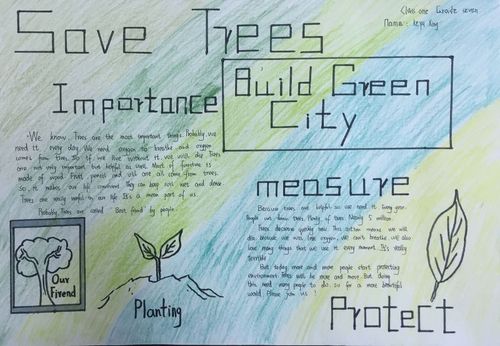 Class one Grade seven
Name:
Save Trees
Build Green
City
Importance
We know. Trees are the most important things. Probably, we
need it every day. We need oxygen to breathe and oxygen
comes from trees. So if we live without it, we will die. Trees
are not only important but helpful as well. Most of furnitine is
made of wood. Fruit, pencil and will are all come from trees.
So, it makes our life convinent. They can keep soil wet and dence
Trees are really useful in our life. It's a mean part of us.
Probably, Trees are called : Best friend by people.
measure
Because trees are helpful so we need it Every year.
People cut down trees. Plenty of trees. Nearly 5 million.
Trees decrease quickly now. This action means we will
die. because we will lose oxygen, we can't breathe. we also
lose many things that we use it every moment. It's really
terrible.
But today, more and more people start protecting
environment. Trees will be more and more. But doing
this need many people to do. so for a more beautiful
world. Please join us !
Our
Firend
Planting
Protect